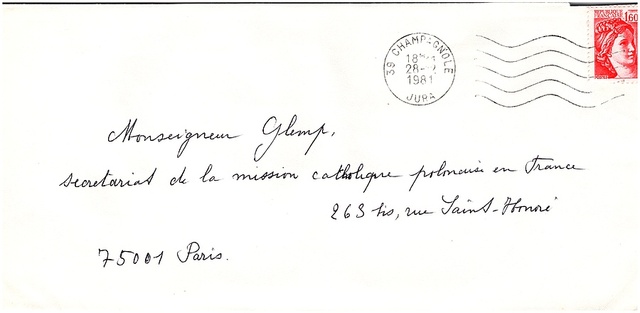 REPUBLIQUE
FRANCAISE
1,60
39 CHAMPAGNOLE
18H
28-
1981
JURA
Monseigneur Glemp,
secretariat de la mission catholique polonaise en France
263 bis, rue Saint-Honoré
75001 Paris.